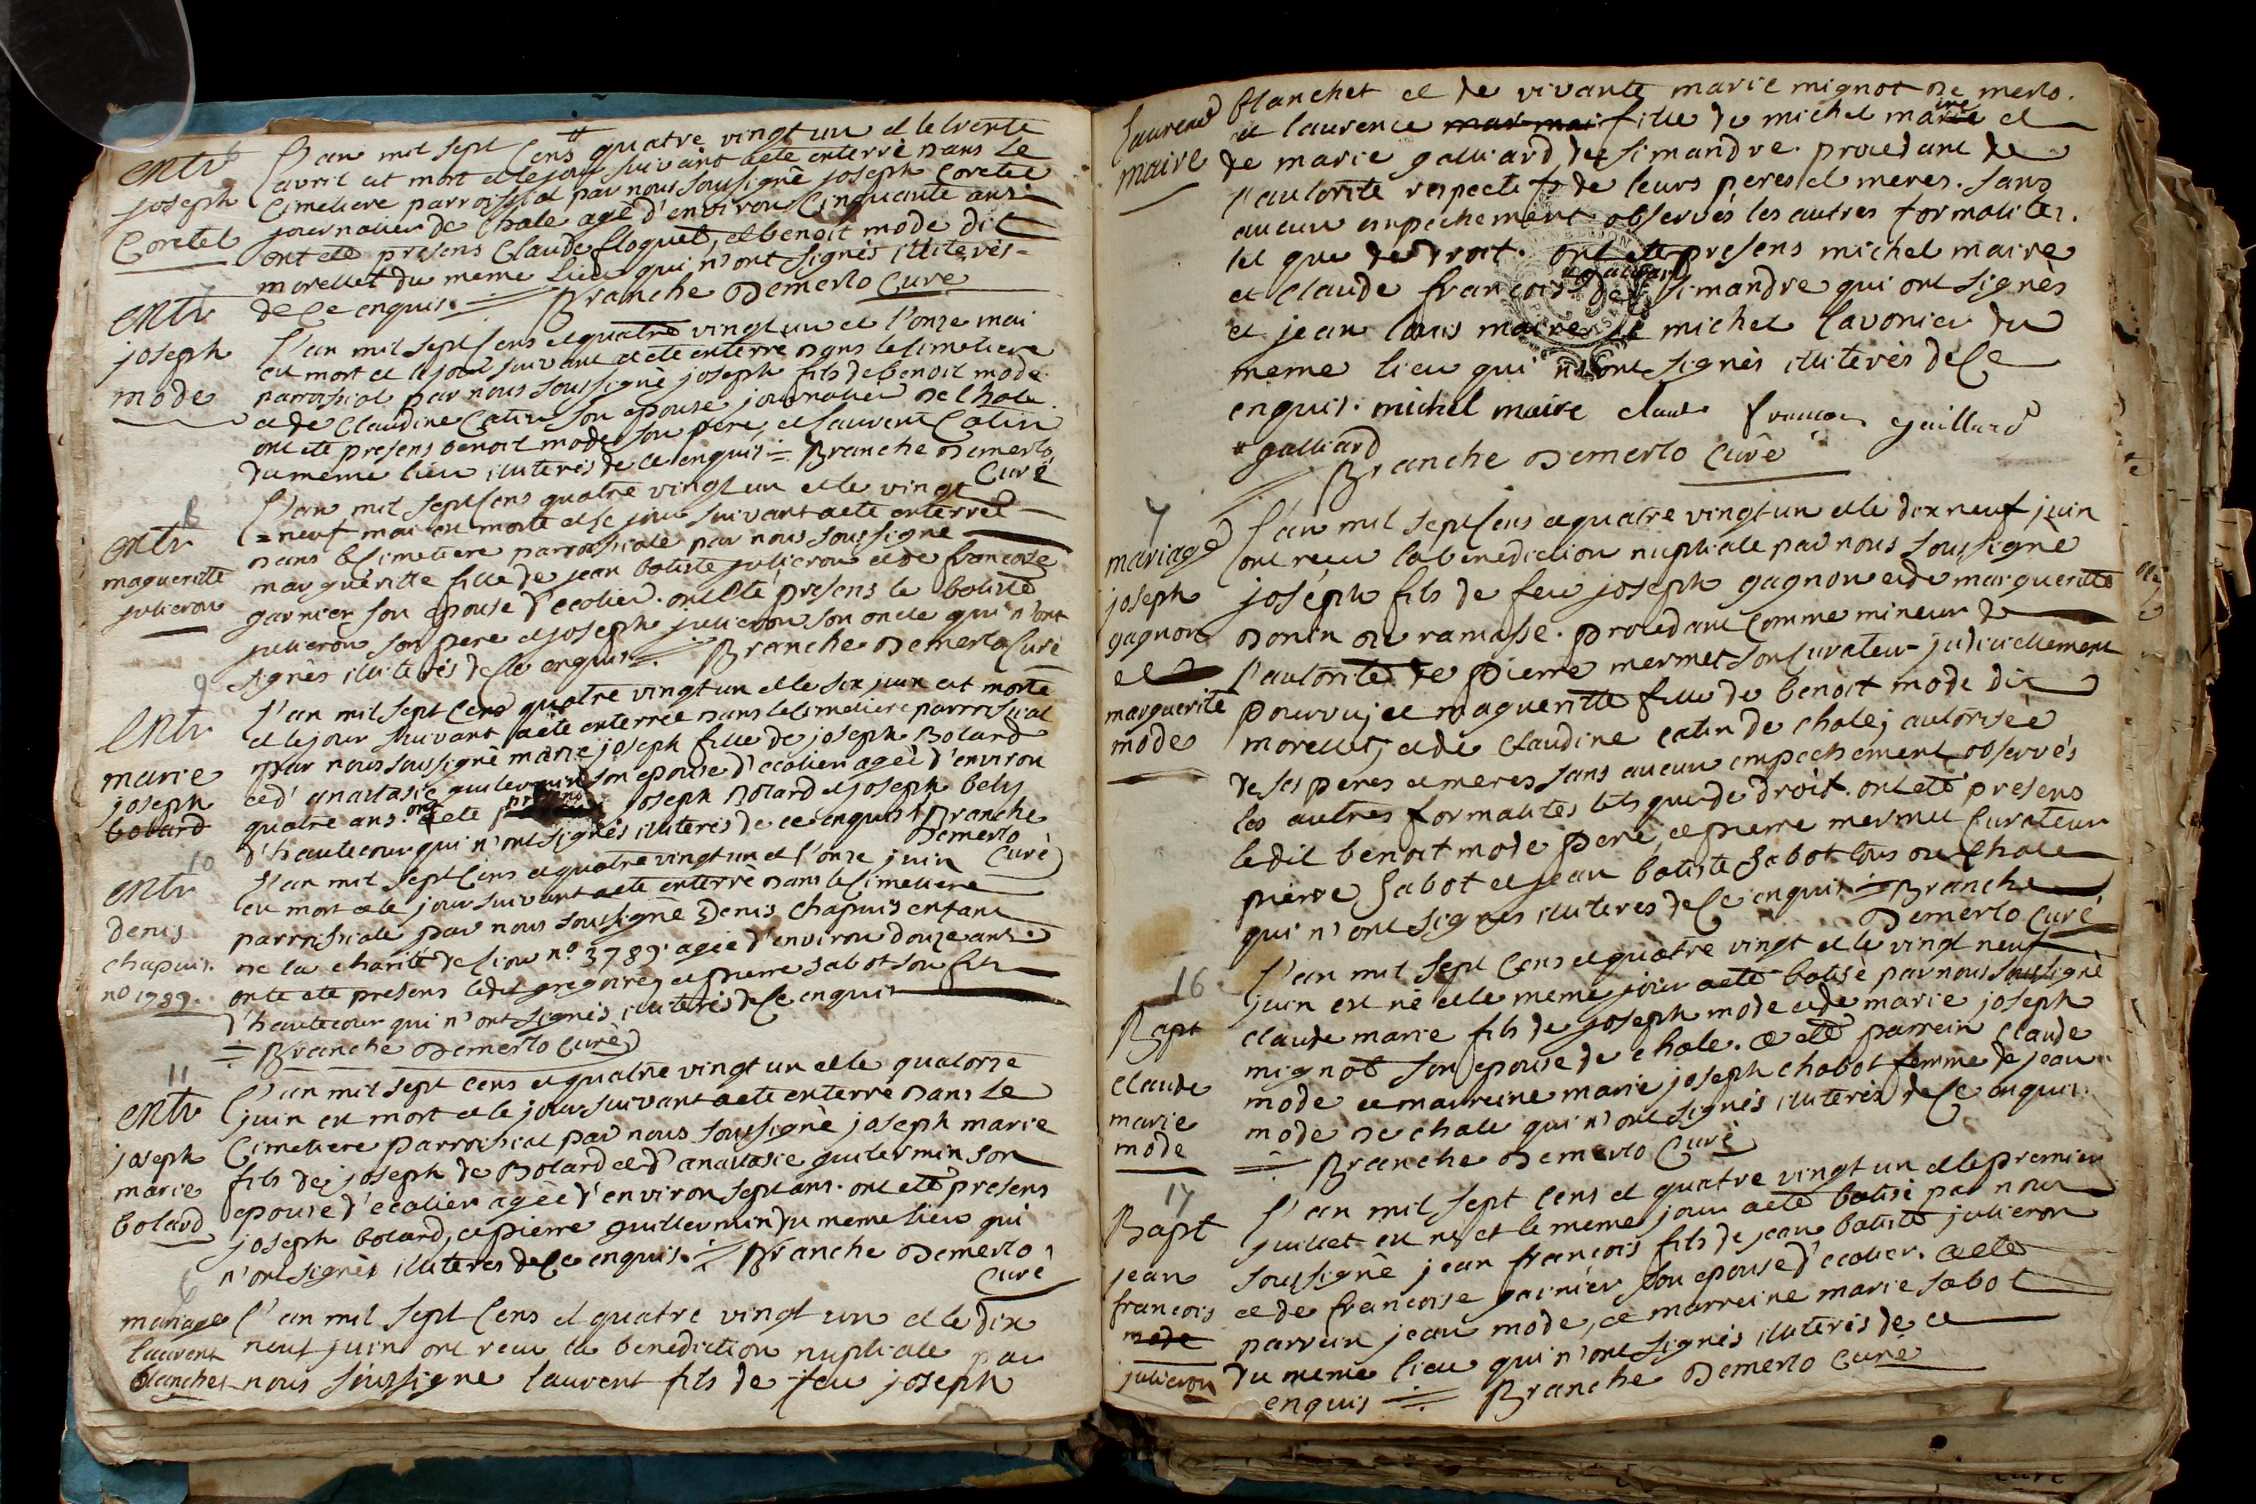 6
entr
joseph
Coretel
L'an mil sept Cens quatre vingt un et le trente
avril est mort et le jour suivant a ete enterré dans le
Cimetiere parroissial par nous soussigné joseph Coretel
journalier de Chale agé d'environ Cinquante ans
ont eté presens Claude floquet, et benoit mode dit
morellet du meme Lieu qui n'ont signés illiterés
de Ce enquis. Branche Demerlo Curé
7
entr
joseph
mode
L'an mil sept Cens et quatre vingt un et l'onze mai
est mort et le jour suivant a ete enterré dans le Cimetiere
parroissial par nous soussigné joseph fils de benoit mode
et de Claudine Catin son epouse journalier de Chale
ont ete presens benoit mode son pere, et laurent Catin
du meme lieu illiterés de ce enquis = Branche Demerlo
Curé
8
entr
magueritte
julieron
L'an mil sept Cens quatre vingt un et le vingt
= neuf mai est morte et le jour suivant a ete enterreé
dans le Cimetiere parroissiale par nous soussigné
margueritte fille de jean batiste julieron et de francoise
garnier son epouse d'ecolier. ont eté presens le batiste
julieron son pere et joseph julieron son oncle qui n'ont
signés illiterés de Ce enquis =. Branche Demerlo Curé
9
entr
marie
joseph
bolard
L'an mil sept Cens quatre vingt un et le six juin est morte
et le jour suivant a ete enterreé dans le Cimetiere parroissial
par nous soussigné marie joseph fille de joseph Bolard
et d'anastasie guilermin son epouse d'ecolier ageé d'environ
quatre ans. ont ete presens joseph Bolard et joseph bely
d'hautecour qui n'ont signés illiterés de ce enquis Branche
Demerlo
Curé
10
entr
denis
chapuis.
no 1789.
L'an mil sept Cens et quatre vingt un et l'onze juin
est mort et le jour suivant a ete enterré dans le Cimetiere
parroissiale par nous soussigné Denis Chapuis enfant
de la charité de Lion no. 3789. ageé d'environ douze ans
ont ete presens ledit gregoire, et pierre sabot son fils
d'hautecour qui n'ont signés illiterés de Ce enquis
= Branche Demerlo Curé
11
entr
joseph
marie
bolard
L'an mil sept Cens et quatre vingt un et le quatorze
juin est mort et le jour suivant a ete enterré dans le
Cimetiere parroissial par nous soussigné joseph marie
fils de joseph de Bolard et d'anastasie guilermin son
epouse d'ecolier ageé d'environ sept ans. ont eté presens
joseph bolard, et pierre guillermin du meme lieu qui
n'ont signés illiterés de Ce enquis. = Branche Demerlo
Curé
6
mariage
laurent
blanchet
L'an mil sept Cens et quatre vingt un et le dix
neuf juin ont recu la benediction nuptiale par
nous soussigné laurent fils de feu joseph
laurence
maire
blanchet et de vivante marie mignot de merlo.
et laurence mar mai fille de michel maire et
de marie galliard de simandre. procedant de
l'autorité respectifs de leurs peres et meres. sans
aucun empechement observés les autres formalités.
tel que de droit. ont eté presens michel maire
et Claude francois * galliard de simandre qui ont signés
et jean louis maire et michel lavonier du
meme lieu qui n'ont signés illiterés de Ce
enquis. michel maire claude francois gaillard
* galliard
Branche Demerlo Curé
7
mariage
joseph
gagnon
et
marguerite
mode
L'an mil sept Cens et quatre vingt un et le dix neuf juin
ont recu la benediction nuptiale par nous soussigné
joseph fils de feu joseph gagnon et de margueritte
donin de ramasse. procedant Comme mineur de
l'autorité de pierre mermet son Curateur judiciellement
pourvu, et magueritte fille de benoit mode dit
morellet, et de Claudine catin de chale, autorisée
de ses peres et meres sans aucun empechement observés
les autres formalités tels que de droit. ont eté presens
ledit benoit mode pere, et pierre mermet Curateur
pierre Sabot et jean batiste Sabot tous de Chale
qui n'ont signés illiterés de Ce enquis = Branche
Demerlo Curé
16
Bapt
Claude
marie
mode
L'an mil sept Cens et quatre vingt et le vingt neuf
juin est né et le meme jour a eté batisé par nous soussigné
claude marie fils de joseph mode et de marie joseph
mignot son epouse de chale. a eté parrein Claude
mode et marreine marie joseph chabot femme de jean
mode de chale qui n'ont signés illiterés de Ce enquis
= Branche Demerlo Curé
17
Bapt
jean
francois
mode
julieron
L'an mil sept Cens et quatre vingt un et le premier
juillet est né et le meme jour a eté batisé par nous
soussigné jean francois fils de jean batiste julieron
et de francoise garnier son epouse d'ecolier. a eté
parrein jean mode, et marreine marie sabot
du meme lieu qui n'ont signés illiterés de ce
enquis = Branche Demerlo Curé